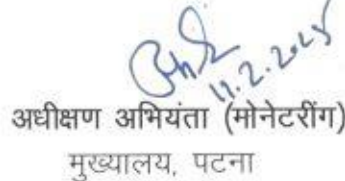 11.2.2025
अधीक्षण अभियंता (मोनेटरींग)
मुख्यालय, पटना